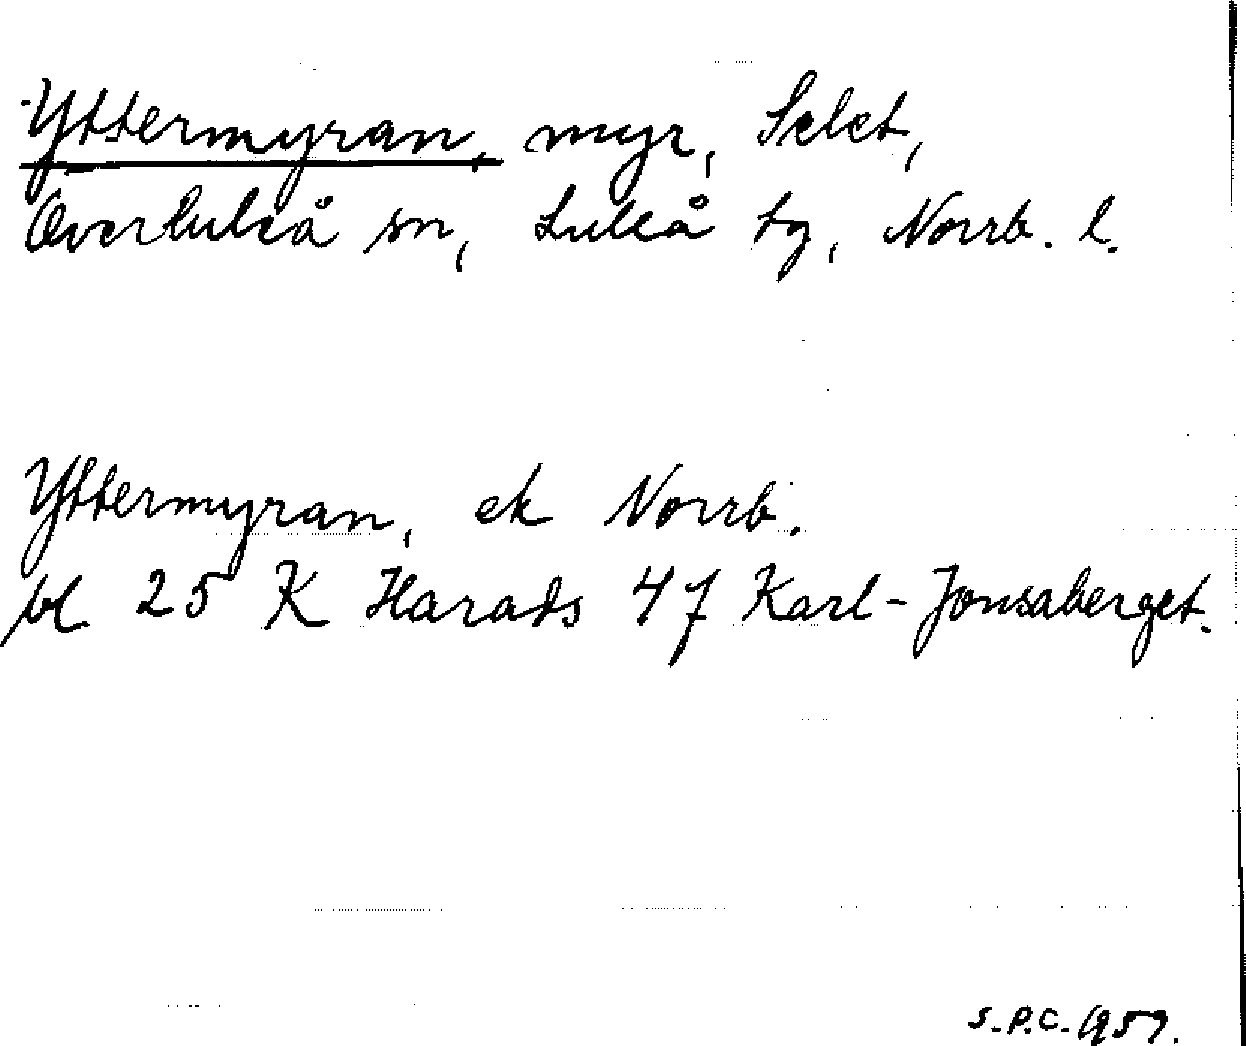 Yttermyran, myr, Selet,
Överluleå sn, Luleå tg, Norrb. l.
Yttermyran, ek Norrb.
bl 25 K Harads 47 Karl-Jonsaberget.
S.P.C. 1957.